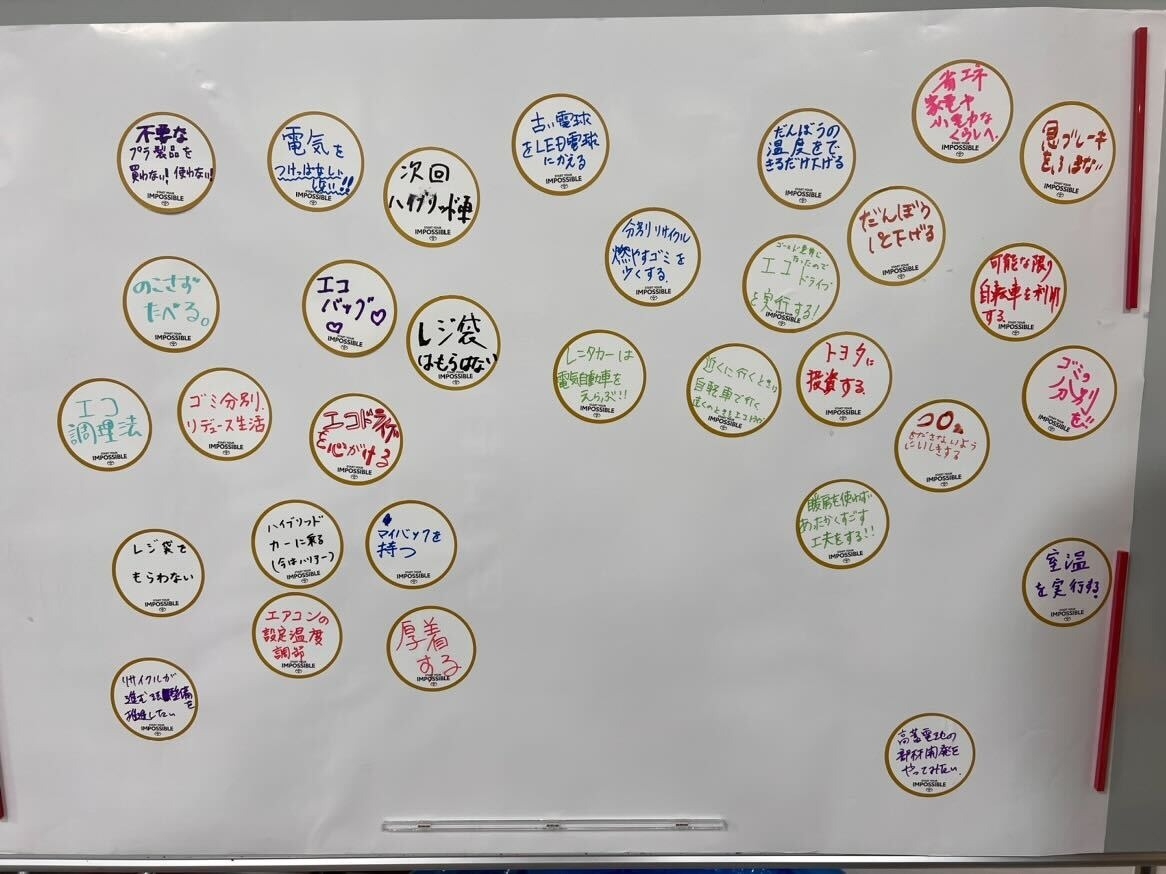 不要な
プラ製品を
買わない!使わない!
START YOUR
IMPOSSIBLE
電気を
つけっぱなしに
しない!!
START YOUR
IMPOSSIBLE
次回
ハイブリッド車
START YOUR
IMPOSSIBLE
古い電球
をLED電球
にかえる
START YOUR
IMPOSSIBLE
だんぼうの
温度をで
きるだけ下げる
START YOUR
IMPOSSIBLE
省エネ
家電や
小電力な
くらしへ。
START YOUR
IMPOSSIBLE
急ブレーキ
をふまない
START YOUR
IMPOSSIBLE
のこさず
たべる。
START YOUR
IMPOSSIBLE
エコ
バッグ♡
♡
START YOUR
IMPOSSIBLE
レジ袋
はもらはない
START YOUR
IMPOSSIBLE
分別リサイクル
燃やすゴミを
少くする.
START YOUR
IMPOSSIBLE
ゴールド免許に
なったので
エコドライブ
を実行する!
START YOUR
IMPOSSIBLE
だんぼう
1℃下げる
START YOUR
IMPOSSIBLE
可能な限り
自転車を利用
する.
START YOUR
IMPOSSIBLE
エコ
調理法
START YOUR
IMPOSSIBLE
ゴミ分別.
リデュース生活
START YOUR
IMPOSSIBLE
エコドライブ
を心がける
START YOUR
IMPOSSIBLE
レンタカーは
電気自動車を
えらぶ!!
START YOUR
IMPOSSIBLE
近くに行くときは
自転車で行く
遠くのときもエコドライブ
START YOUR
IMPOSSIBLE
トヨタに
投資する.
START YOUR
IMPOSSIBLE
CO₂
をださないよう
にいしきする
START YOUR
IMPOSSIBLE
ゴミの
分別
を!!
START YOUR
IMPOSSIBLE
レジ袋を
もらわない
START YOUR
IMPOSSIBLE
ハイブリッド
カーに乗る
(今はハリアー)
START YOUR
IMPOSSIBLE
マイバックを
持つ
START YOUR
IMPOSSIBLE
暖房を使わず
あったかくすごす
工夫をする!!
START YOUR
IMPOSSIBLE
室温
を実行する.
START YOUR
IMPOSSIBLE
エアコンの
設定温度
調節
START YOUR
IMPOSSIBLE
厚着
する
START YOUR
IMPOSSIBLE
リサイクルが
進む 整備を
推進したい
START YOUR
IMPOSSIBLE
高蓄電池の
部材開発を
やってみたい.
START YOUR
IMPOSSIBLE